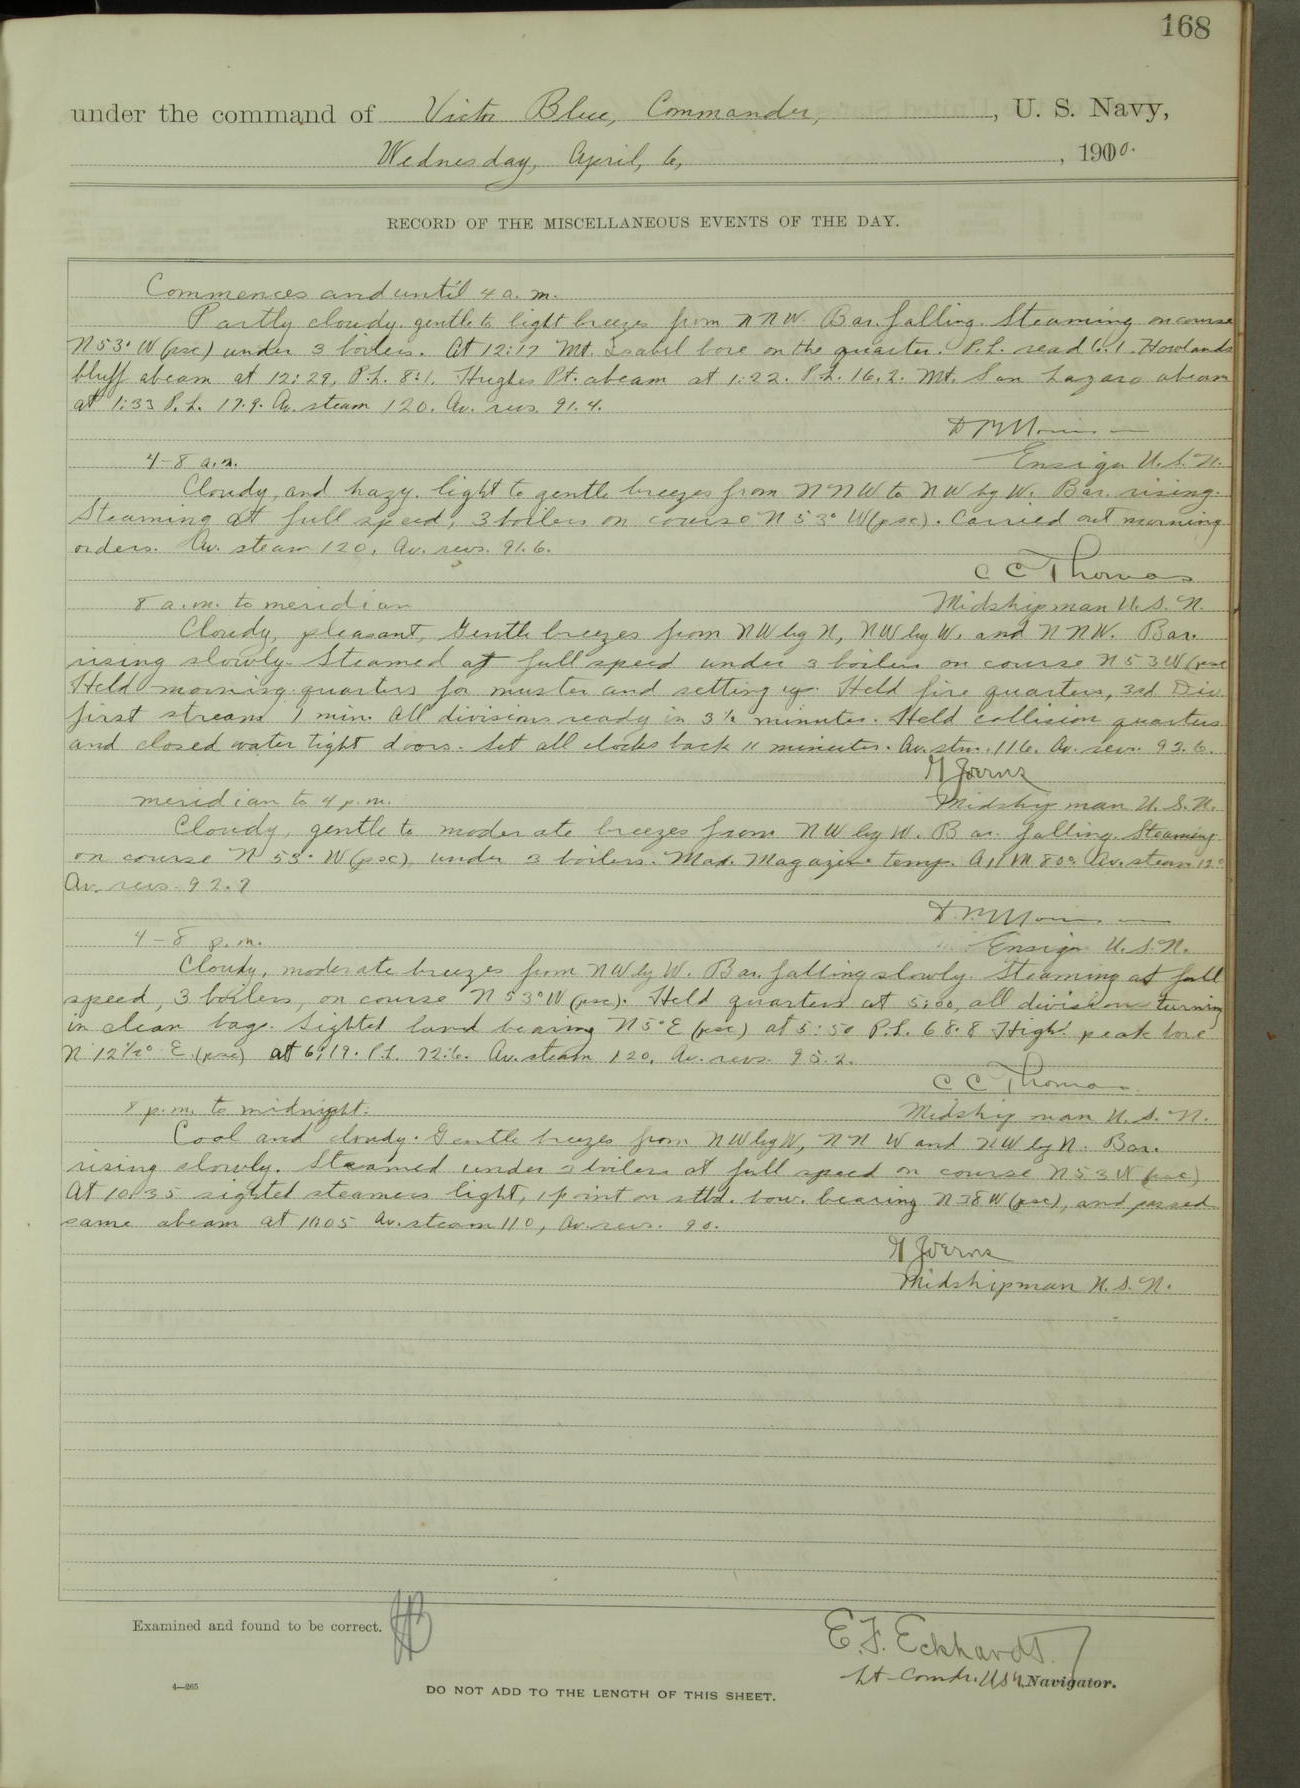 168
under the command of Victor Blue, Commander, , U. S. Navy,
Wednesday, April, 6, , 1910.
RECORD OF THE MISCELLANEOUS EVENTS OF THE DAY.
Commences and until 4 a. m.
Partly cloudy. gentle to light breezes from NNW. Bar. falling. Steaming on course
N 53° W (psc) under 3 boilers. At 12:17 Mt. Isabel bore on the quarter. P.L. read 6.1. Howlands
bluff abeam at 12:29, P.L. 8:1. Hughes Pt. abeam at 1:22. P.L. 16.2. Mt. San Lazaro abeam
at 1:33 P.L. 17.9. Av. steam 120. Av. revs. 91.4.
4-8 a.m.
Ensign U.S.N.
Cloudy, and hazy. light to gentle breezes from NNW to NW by W. Bar. rising.
Steaming at full speed, 3 boilers on course N 53° W (psc). Carried out morning
orders. Av. steam 120. Av. revs. 91.6.
C C Thomas
8 a.m. to meridian
Midshipman U.S.N.
Cloudy, pleasant, Gentle breezes from NW by N, NW by W. and NNW. Bar.
rising slowly. Steamed at full speed under 3 boilers on course N 53 W (psc
Held morning quarters for muster and setting up. Held fire quarters, 3rd Div.
first stream 1 min. All divisions ready in 3 1/2 minutes. Held collision quarters
and closed water tight doors. Set all clocks back 11 minutes. Av. stm. 116. Av. revs. 92.6.
meridian to 4 p.m.
Midshipman U.S.N.
Cloudy, gentle to moderate breezes from NW by W. Bar. falling. Steaming
on course N 53° W (psc) under 3 boilers. Max. Magazine temp. 80°. Av. steam
Av. revs. 92.7
4-8 p.m.
Ensign U.S.N.
Cloudy, moderate breezes from NW by W. Bar. falling slowly. Steaming at full
speed, 3 boilers, on course N 53° W (psc). Held quarters at 5:00, all divisions turning
in clean bags. Sighted land bearing N 5° E (psc) at 5:50 P.L. 68.8 High peak bore
N 12 1/2° E. (psc) at 6:19. P.L. 72:6. Av. steam 120, Av. revs. 95.2.
C C Thomas
8 p.m. to midnight.
Midshipman U.S.N.
Cool and cloudy. Gentle breezes from NW by W, NNW and NW by N. Bar.
rising slowly. Steamed under 3 boilers at full speed on course N 53 W (psc)
At 10:35 sighted steamers light, 1 point on stbd. bow. bearing N 38 W (psc), and passed
same abeam at 11:05 Av. steam 110, Av. revs. 90.
Midshipman U.S.N.
Examined and found to be correct.
E. F. Eckhardt
Lt-Comdr. USN, Navigator.
4—265
DO NOT ADD TO THE LENGTH OF THIS SHEET.